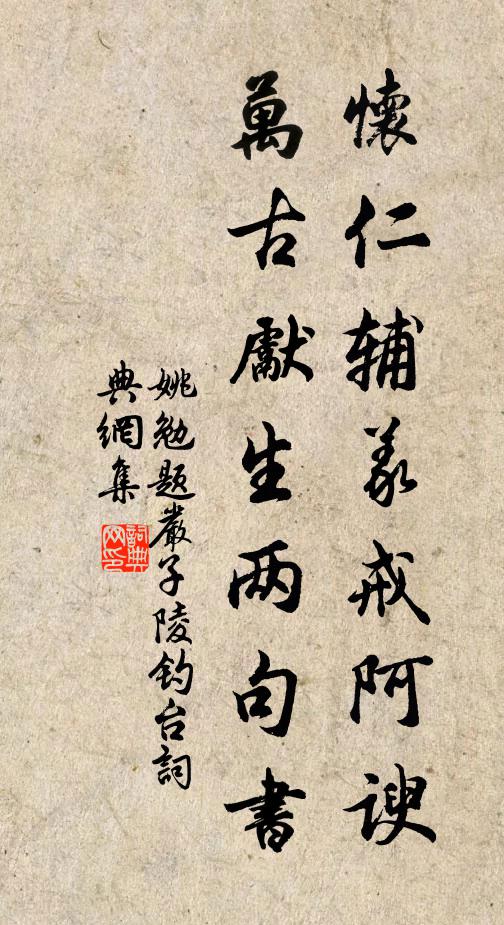 懷仁輔義戒阿諛
萬古獻生两句書
姚勉題嚴子陵釣台詞
典網集
詞典
网印